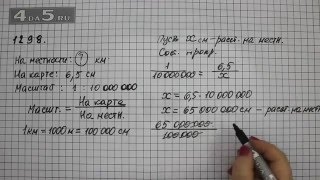 4DA5.RU
1298.
На местности: ? км
На карте: 6,5 см
Масштаб: 1 : 10 000 000
Масшт. = На карте / На местн.
1км = 1000 м = 100 000 см
Пусть x см - расст. на местн.
Сов. пропр.
1 / 10 000 000 = 6,5 / x
x = 6,5 · 10 000 000
x = 65 000 000 см - расст. на местн.
65 000 000 / 100 000